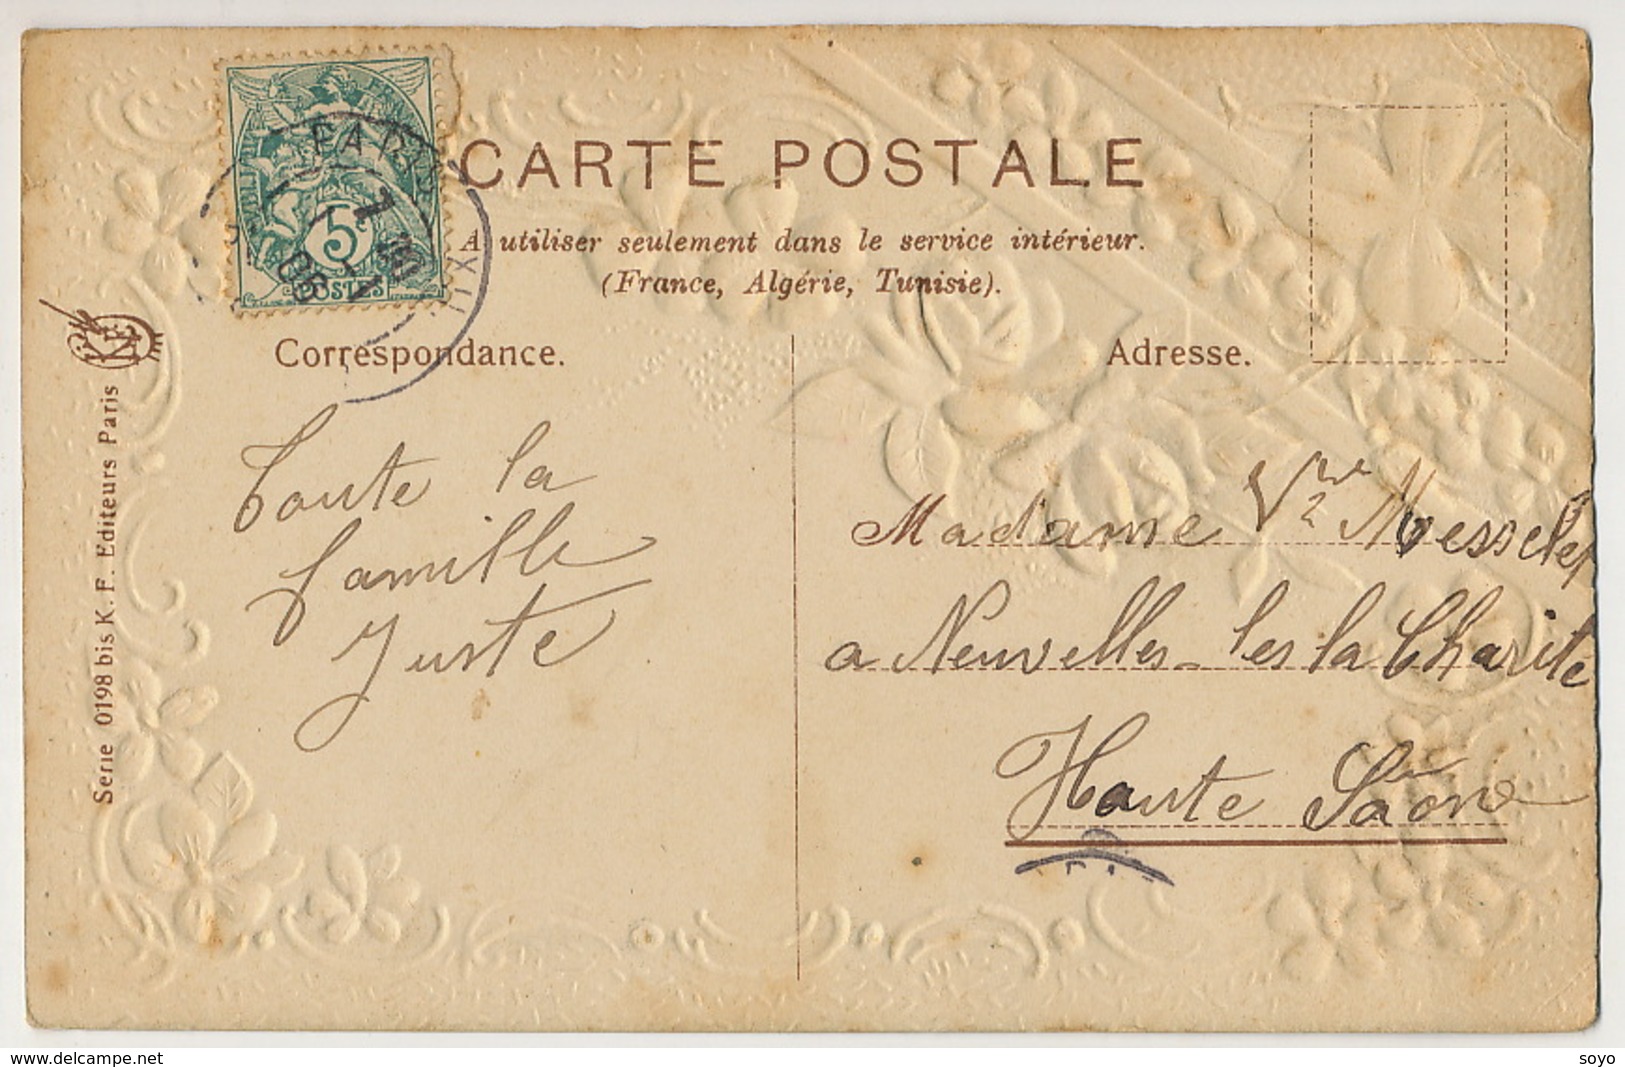 CARTE POSTALE
A utiliser seulement dans le service intérieur.
(France, Algérie, Tunisie).
Correspondance.
Adresse.
5c
POSTES
PARIS
06
KF
Serie 0198 bis K. F. Editeurs Paris
Toute la
famille
Juste
Madame Vve Messelet
a Neuvelles-les la Charité
Haute Saône
www.delcampe.net
soyo